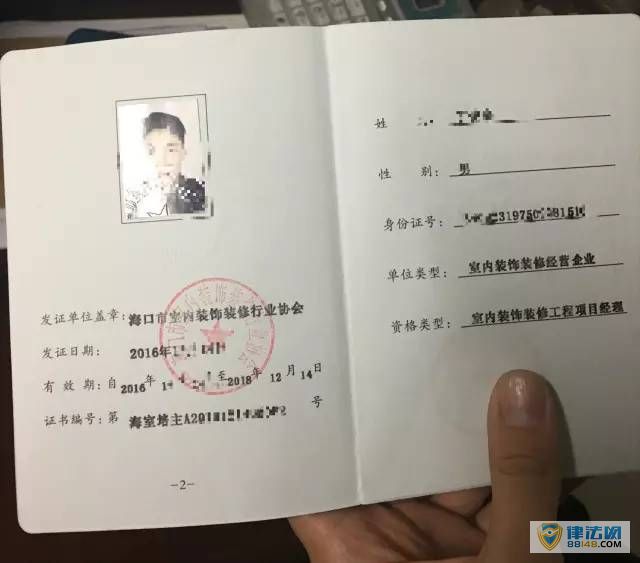 发证单位盖章: 海口市室内装饰装修行业协会
发证日期: 2016年
有效期: 自2016年 至2018年12月14日
证书编号: 第 海室培主A201 号
-2-
姓
性别: 男
身份证号:
单位类型: 室内装饰装修经营企业
资格类型: 室内装饰装修工程项目经理
律法网
88148.COM